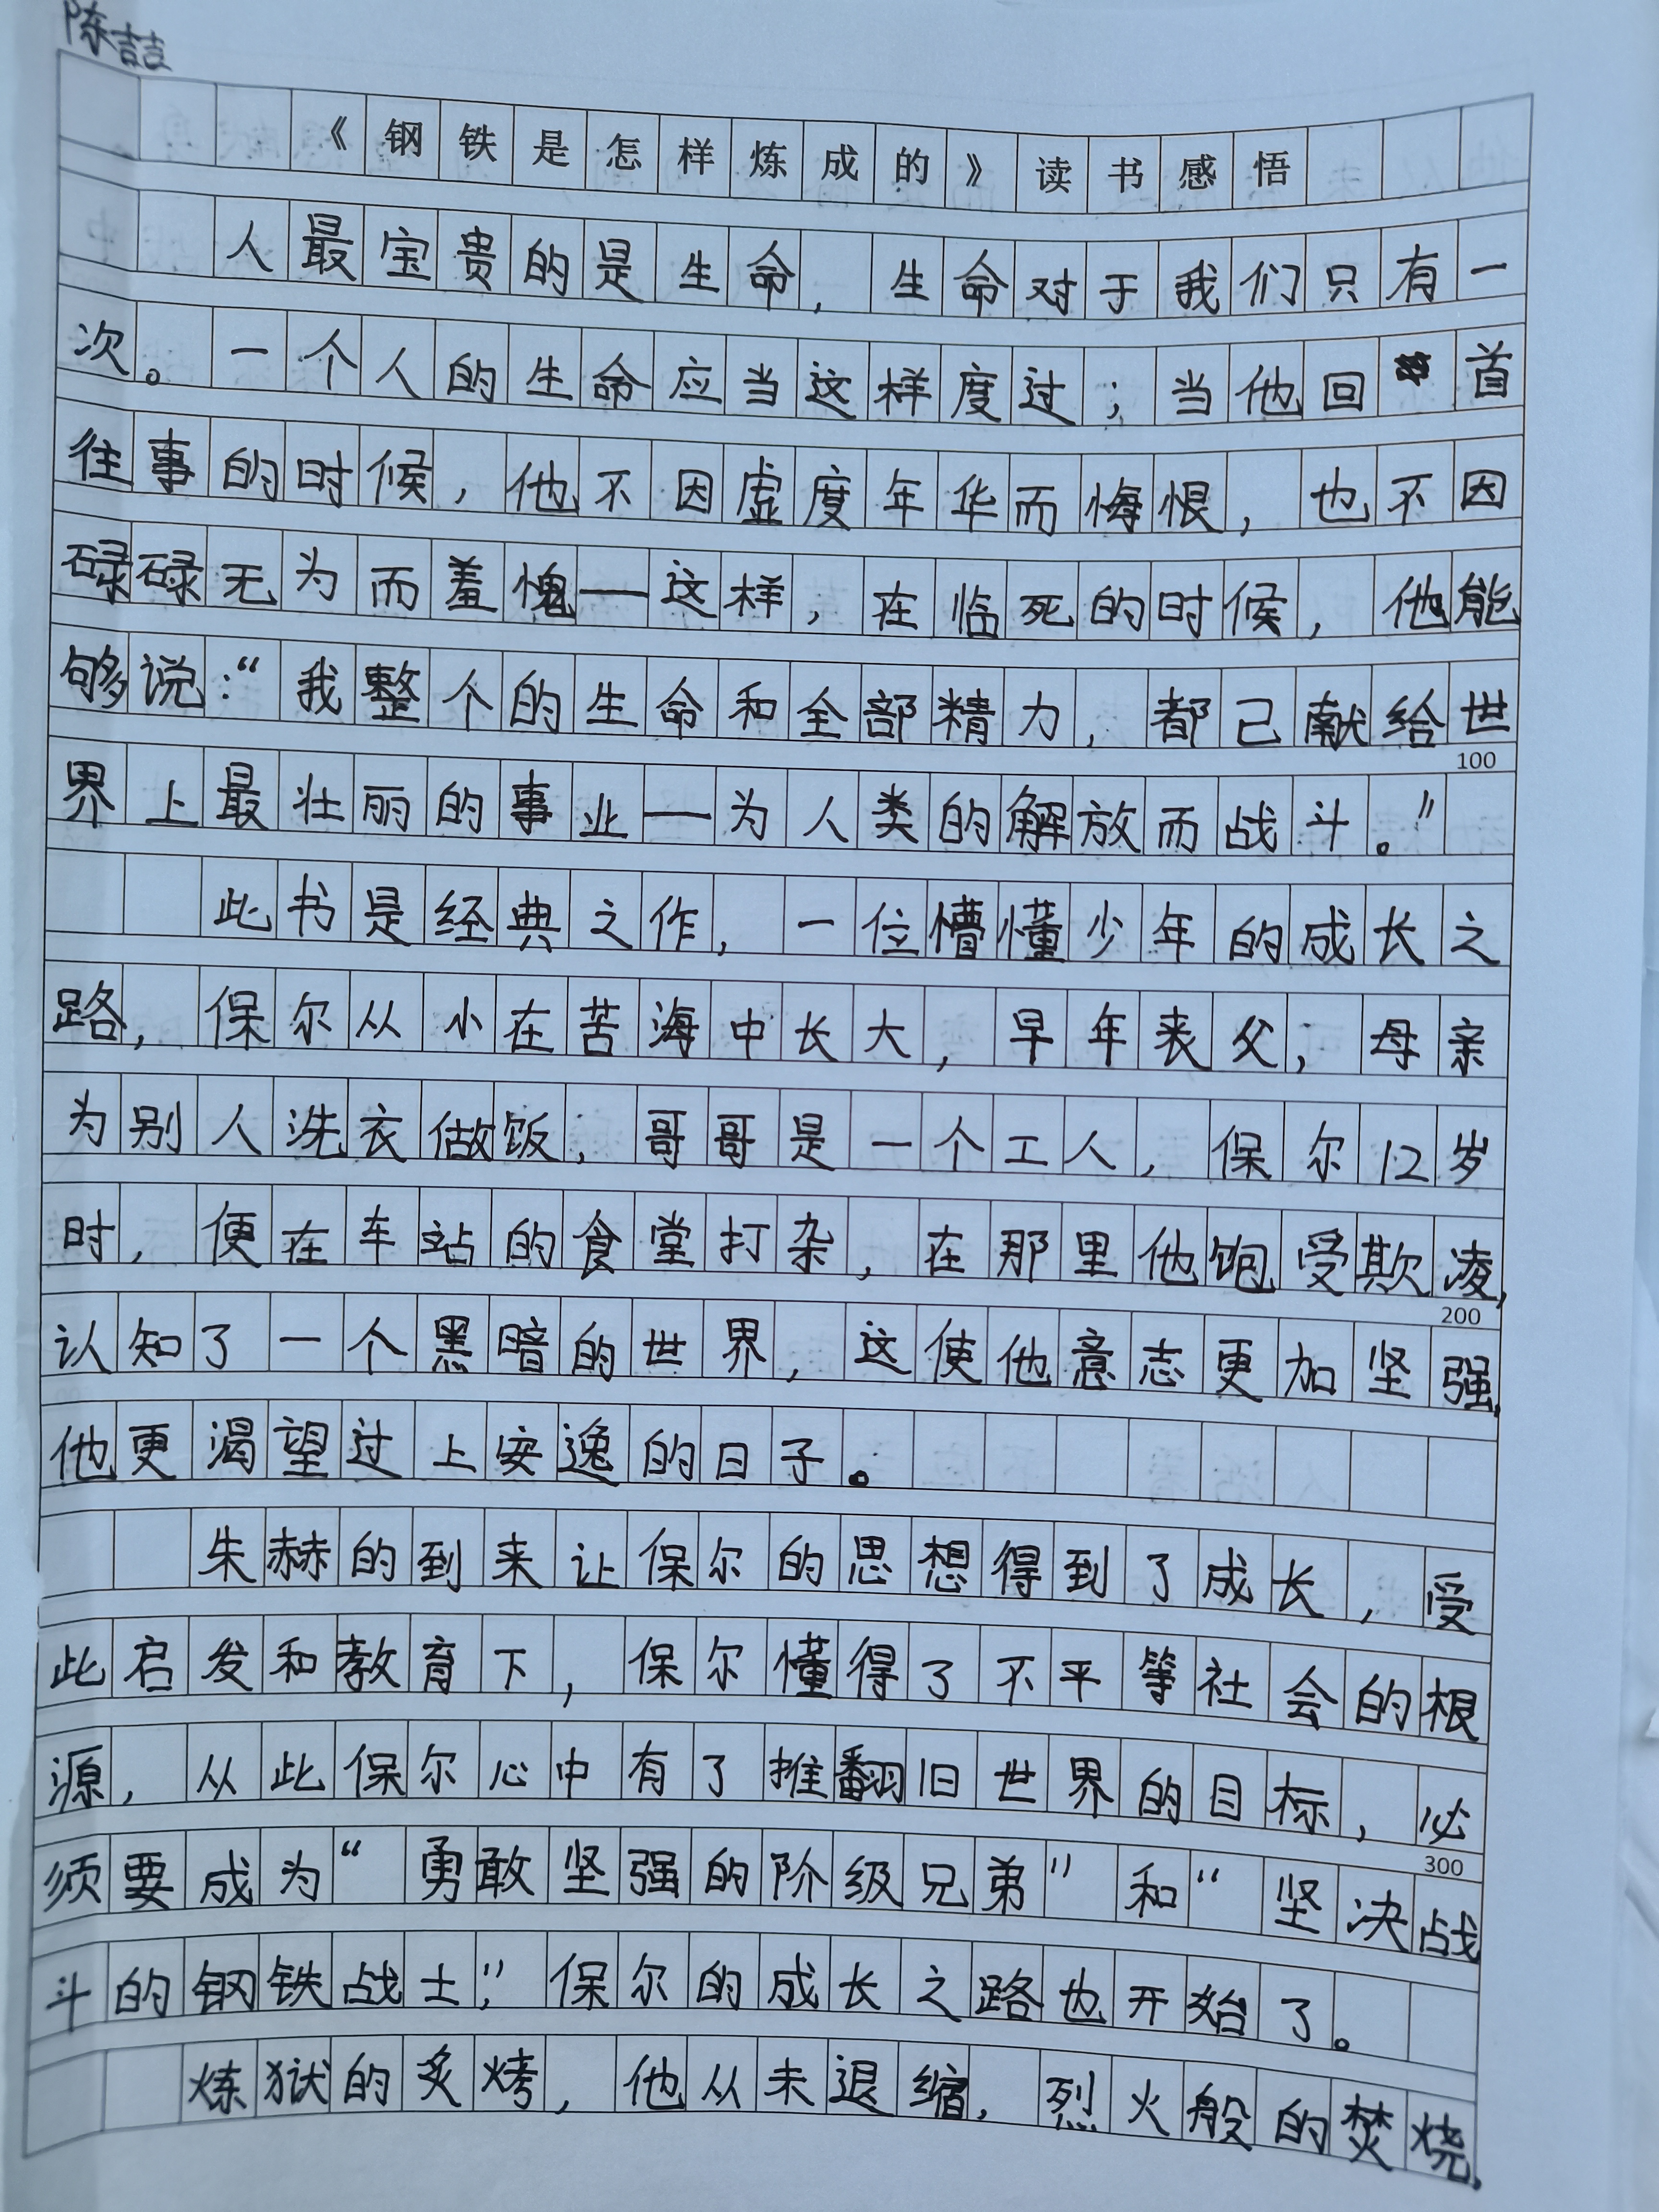 陈喆
《钢铁是怎样炼成的》读书感悟
人最宝贵的是生命，生命对于我们只有一
次。一个人的生命应当这样度过；当他回首
往事的时候，他不因虚度年华而悔恨，也不因
碌碌无为而羞愧——这样，在临死的时候，他能
够说：“我整个的生命和全部精力，都己献给世
100
界上最壮丽的事业——为人类的解放而战斗。”
此书是经典之作，一位懵懂少年的成长之
路，保尔从小在苦海中长大，早年丧父，母亲
为别人洗衣做饭，哥哥是一个工人，保尔12岁
时，便在车站的食堂打杂，在那里他饱受欺凌，
200
认知了一个黑暗的世界，这使他意志更加坚强，
他更渴望过上安逸的日子。
朱赫的到来让保尔的思想得到了成长，受
此启发和教育下，保尔懂得了不平等社会的根
源，从此保尔心中有了推翻旧世界的目标，必
300
须要成为“勇敢坚强的阶级兄弟”和“坚决战
斗的钢铁战士”，保尔的成长之路也开始了。
炼狱的炙烤，他从未退缩，烈火般的焚烧，